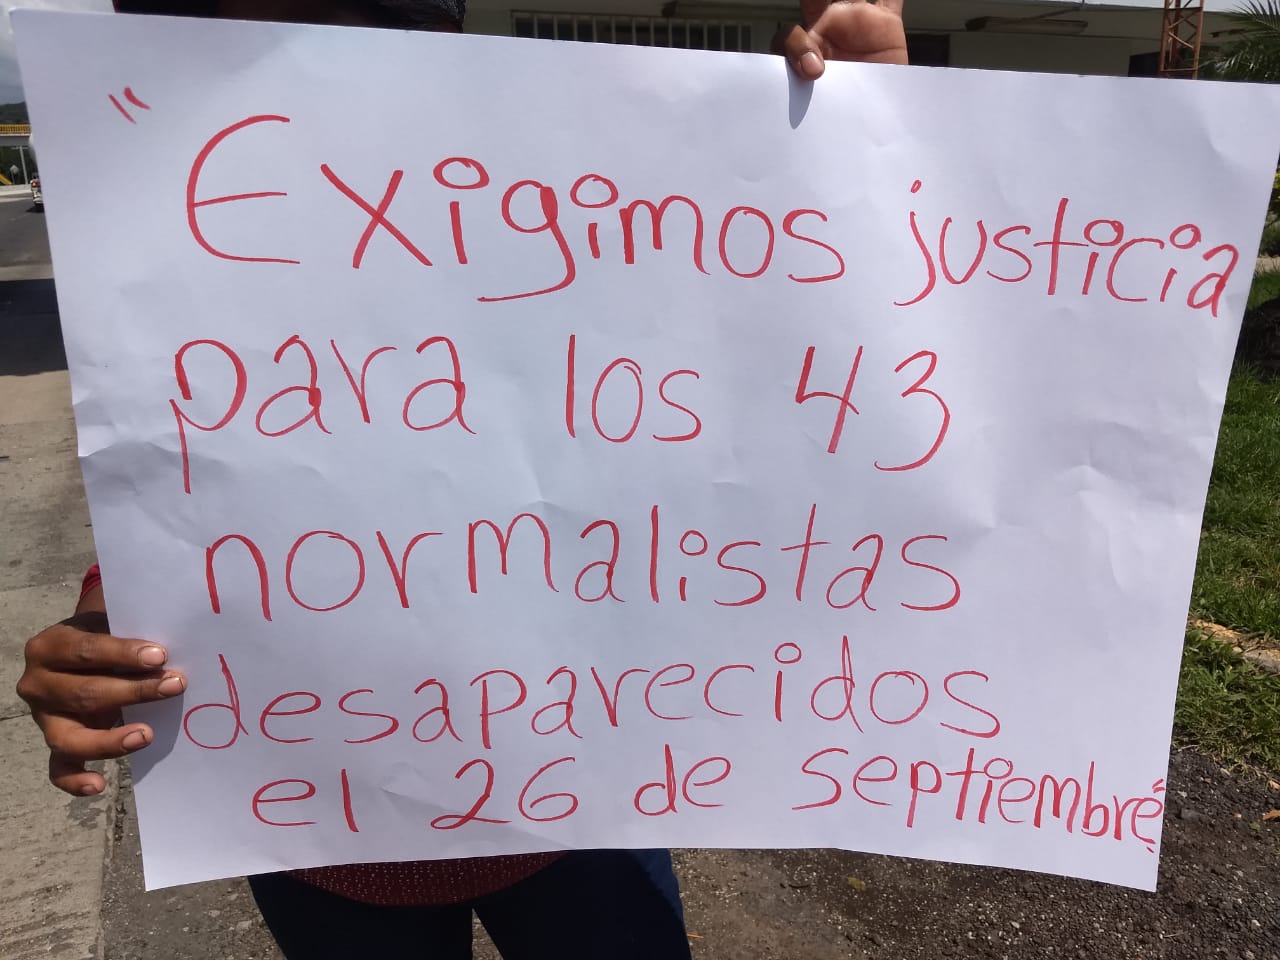 "Exigimos justicia
para los 43
normalistas
desaparecidos
el 26 de septiembre".